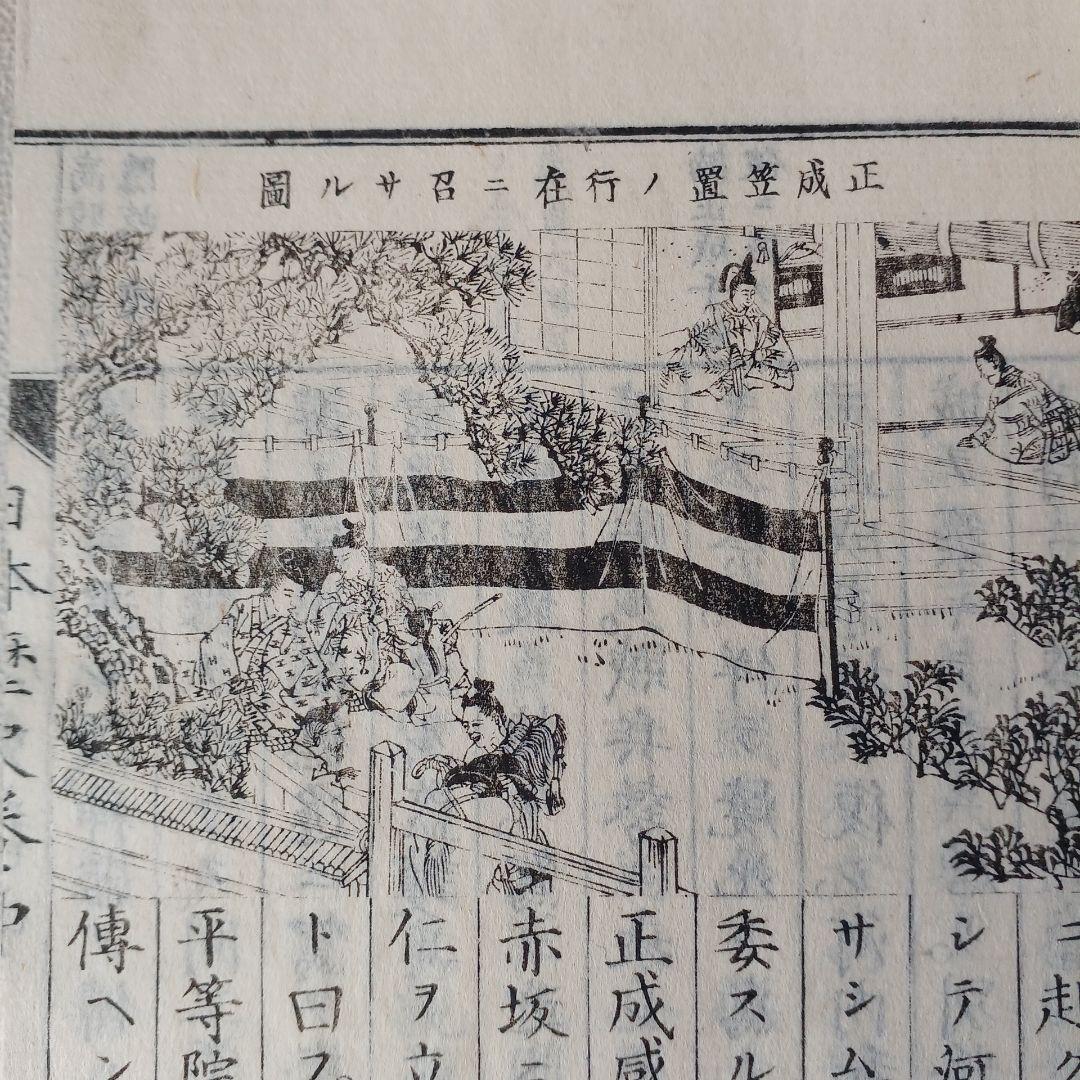 正成笠置ノ行在ニ召サル圖
ニ赴ク
シテ河
サシム
委スル
正成感
赤坂ニ
仁ヲ立
ト曰フ
平等院
傳ヘン
日本